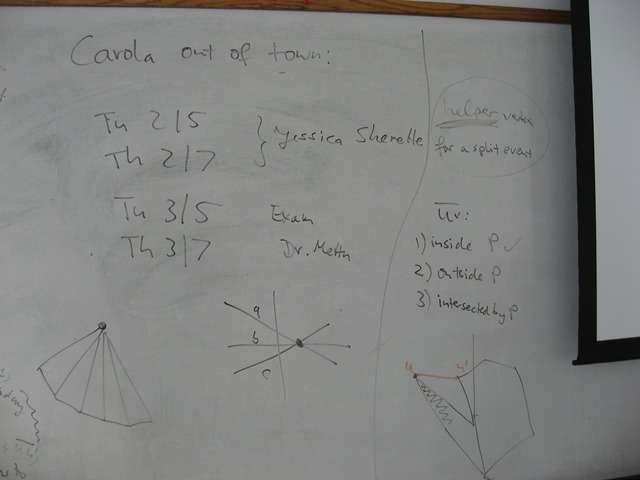 Carola out of town:
Tu 2/5
Th 2/7
} Yessica Sherette
Tu 3/5 Exam
Th 3/7 Dr. Mettu
a
b
c
helper vertex
for a split event
uv:
1) inside P ✓
2) outside P
3) intersected by P
u u'